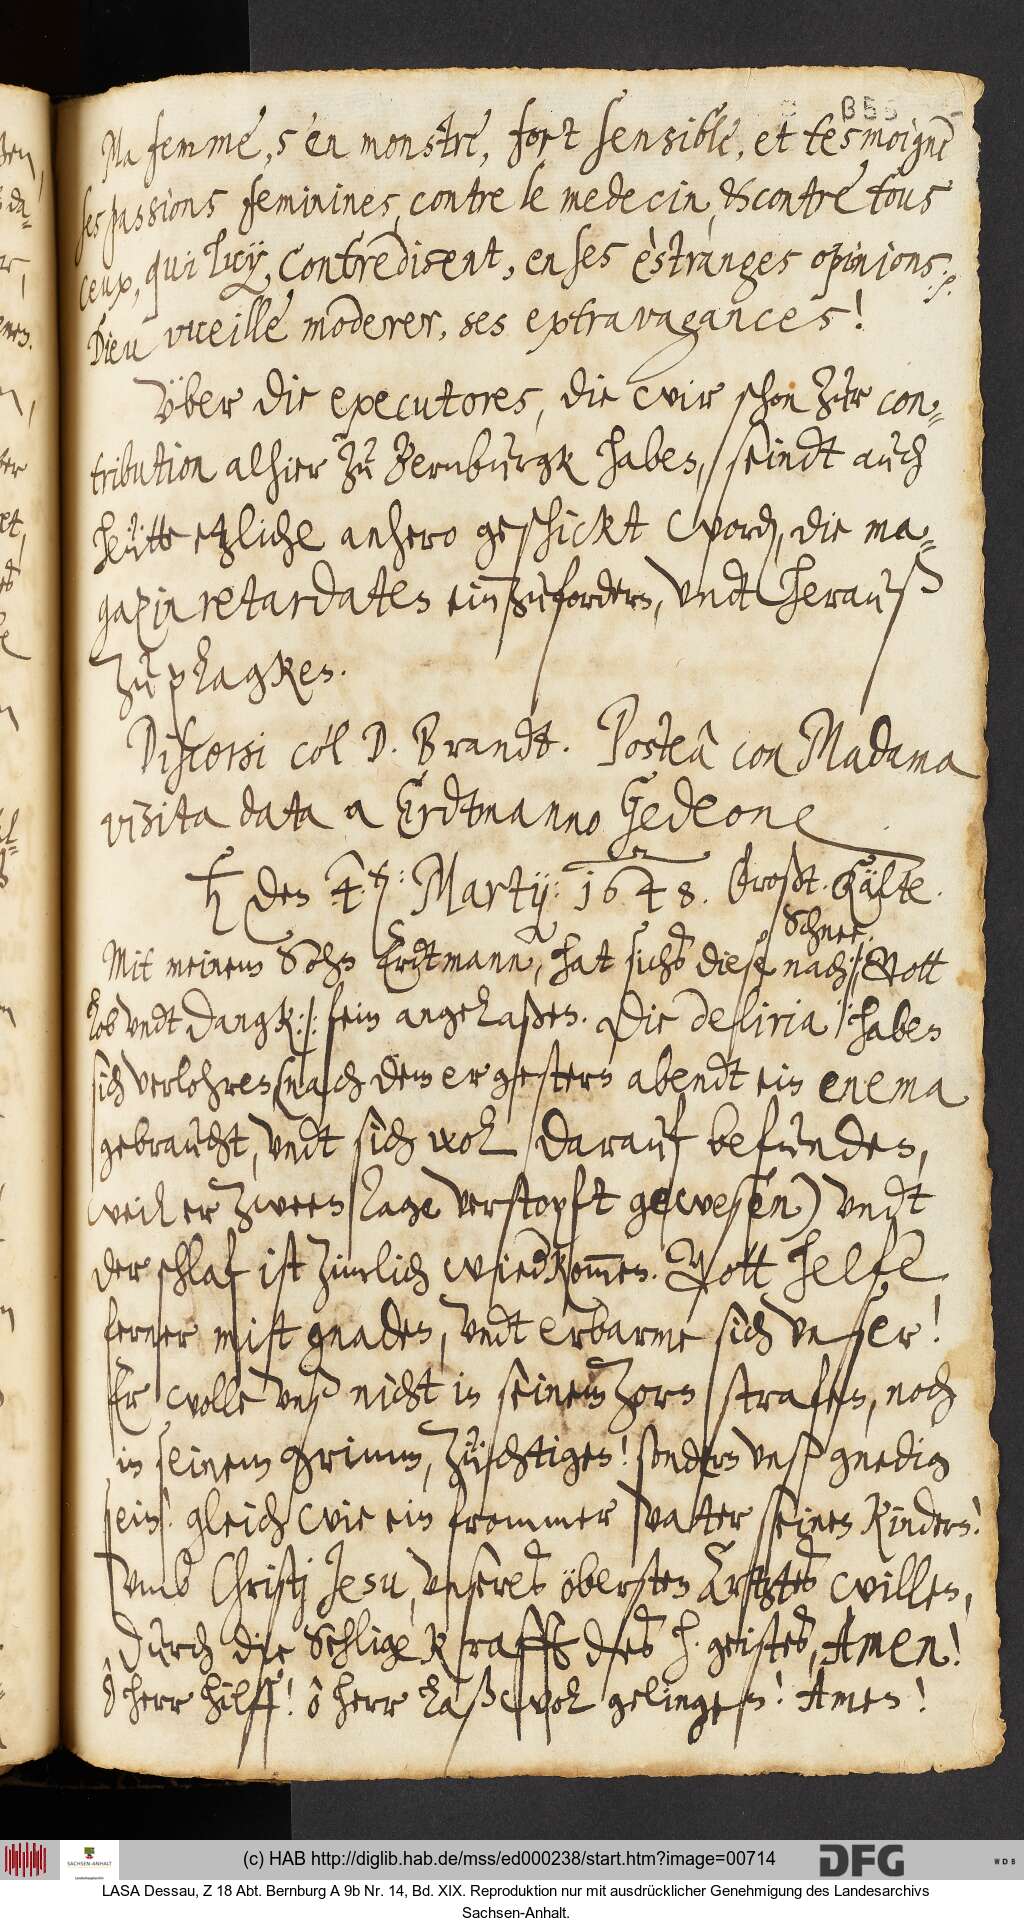 B55
Ma femme, s'en monstre, fort sensible, et tesmoigne
ses passions feminines, contre le medecin, & contre tous
ceux, qui luy, contredisent, en ses estranges opinions. /.
Dieu vueille moderer, ses extravagances!
Vber die executores, die wir schon zur con-
tribution alhier zu Bernburgk haben, seindt auch
heütte etzliche anhero geschickt word, die ma-
gazin retardaten einzufordern, vndt herauß
zu plagken.
Discorsi cól D. Brandt. Posteâ con Madama
visita data a Erdtmanno Gedeone
♄ den 4.ten: Martij: 1648. Großt. Kälte.
Schnee.
Mit meinem Sohn Erdtmann, hat sichs diese nacht, /: Gott
lob vndt dangk :/: fein angelaßen. Die deliria haben
sich verlohren (nach dem er gestern abendt ein enema
gebraucht, vndt sich wol darauf befunden,
weil er zween tage verstopft gewesen) vndt
der schlaf ist zimlich wied kommen. Gott helfe
ferner mist gnaden, vndt erbarme sich vnser!
Er wolle vnß nicht in seinem zorn strafen, noch
in seinem grimm, züchtigen! sondern vnß gnedig
sein! gleich wie ein frommer Vatter seinen Kindern!
vmb Christj Jesu, vnsers öbersten Artztes willen,
durch die Sehlige Krafft des h. geistes, Amen!
ô herr hilff! ô herr laß wol gelingen! Amen!
(c) HAB http://diglib.hab.de/mss/ed000238/start.htm?image=00714
SACHSEN-ANHALT
DFG
W D B
LASA Dessau, Z 18 Abt. Bernburg A 9b Nr. 14, Bd. XIX. Reproduktion nur mit ausdrücklicher Genehmigung des Landesarchivs
Sachsen-Anhalt.